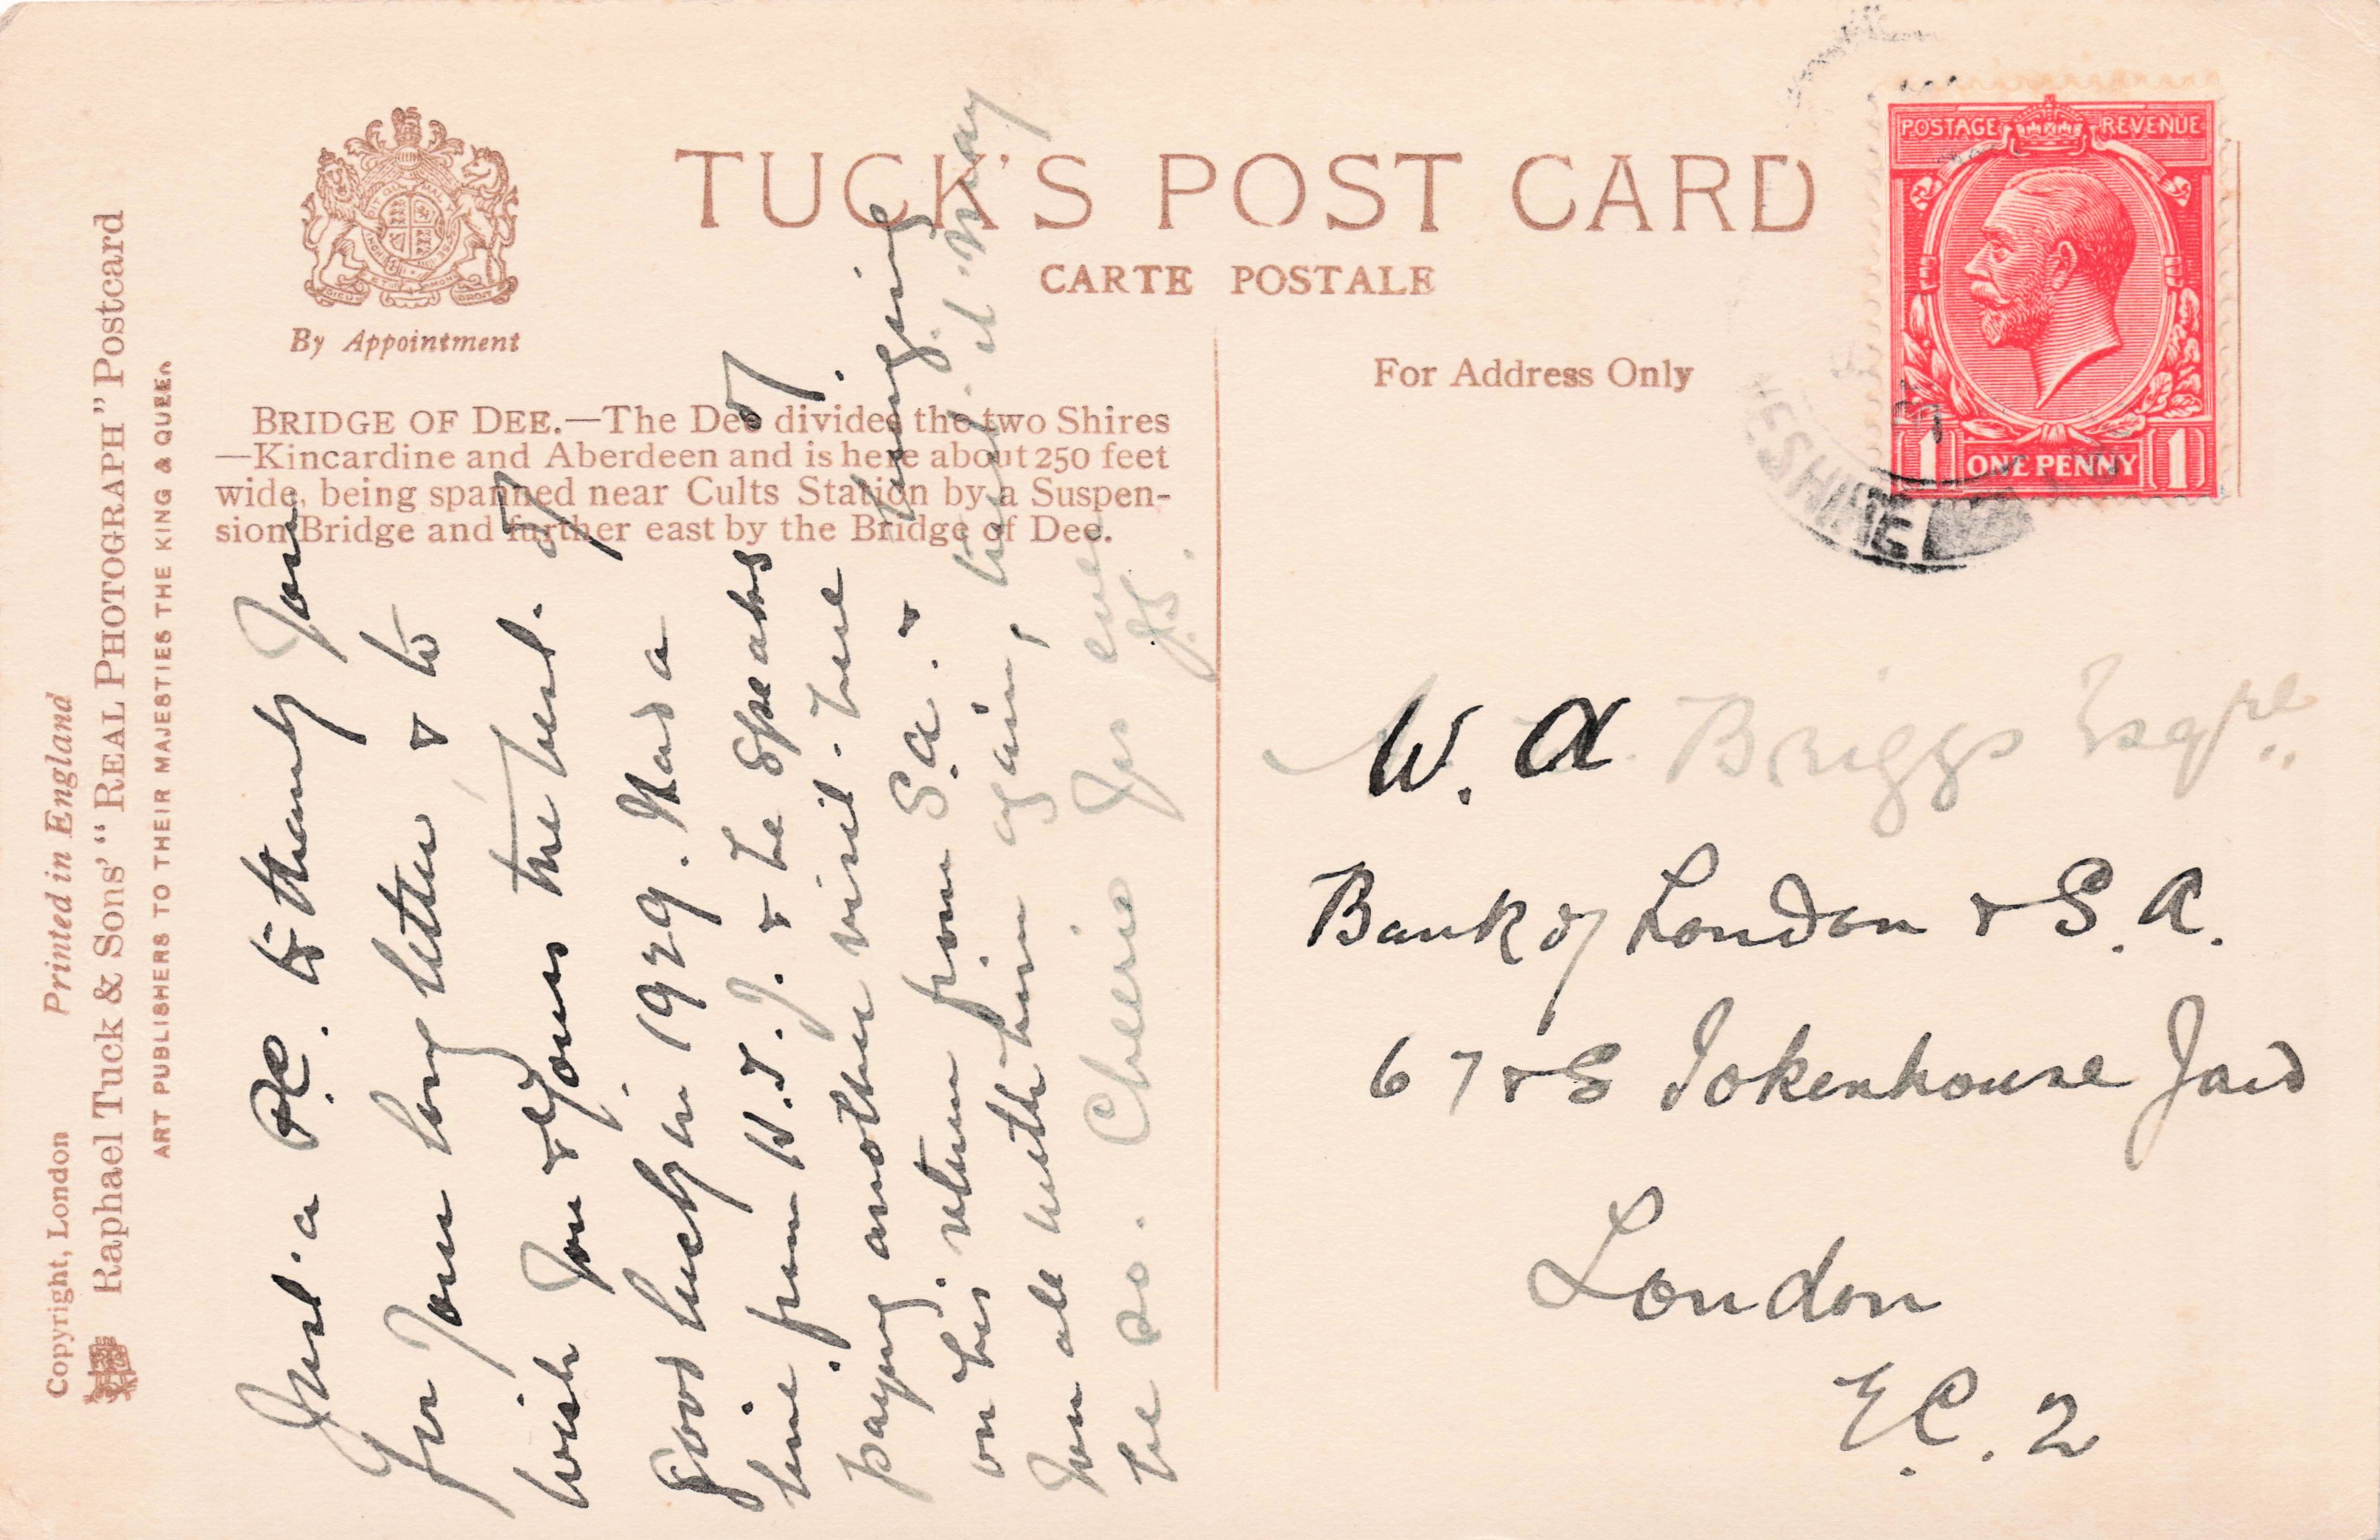 Copyright, London Printed in England
Raphael Tuck & Sons' "REAL PHOTOGRAPH" Postcard
ART PUBLISHERS TO THEIR MAJESTIES THE KING & QUEEN
By Appointment
TUCK'S POST CARD
CARTE POSTALE
For Address Only
BRIDGE OF DEE.—The Dee divides the two Shires
—Kincardine and Aberdeen and is here about 250 feet
wide, being spanned near Cults Station by a Suspen-
sion Bridge and further east by the Bridge of Dee.
Just a P.C. to thank you
for your long letter & to
wish you & yours the best of
good luck in 1929. Had a
line from W.J. & he speaks of
paying another visit here
on his return from S.A. & bringing
you all with him again, but it may
be so. Cheerio Yrs ever
J.S.
POSTAGE REVENUE
1 ONE PENNY 1
ESHIRE
W. A Briggs Esqre
Bank of London & S. A.
6 7 & 8 Tokenhouse Yard
London
E.C. 2